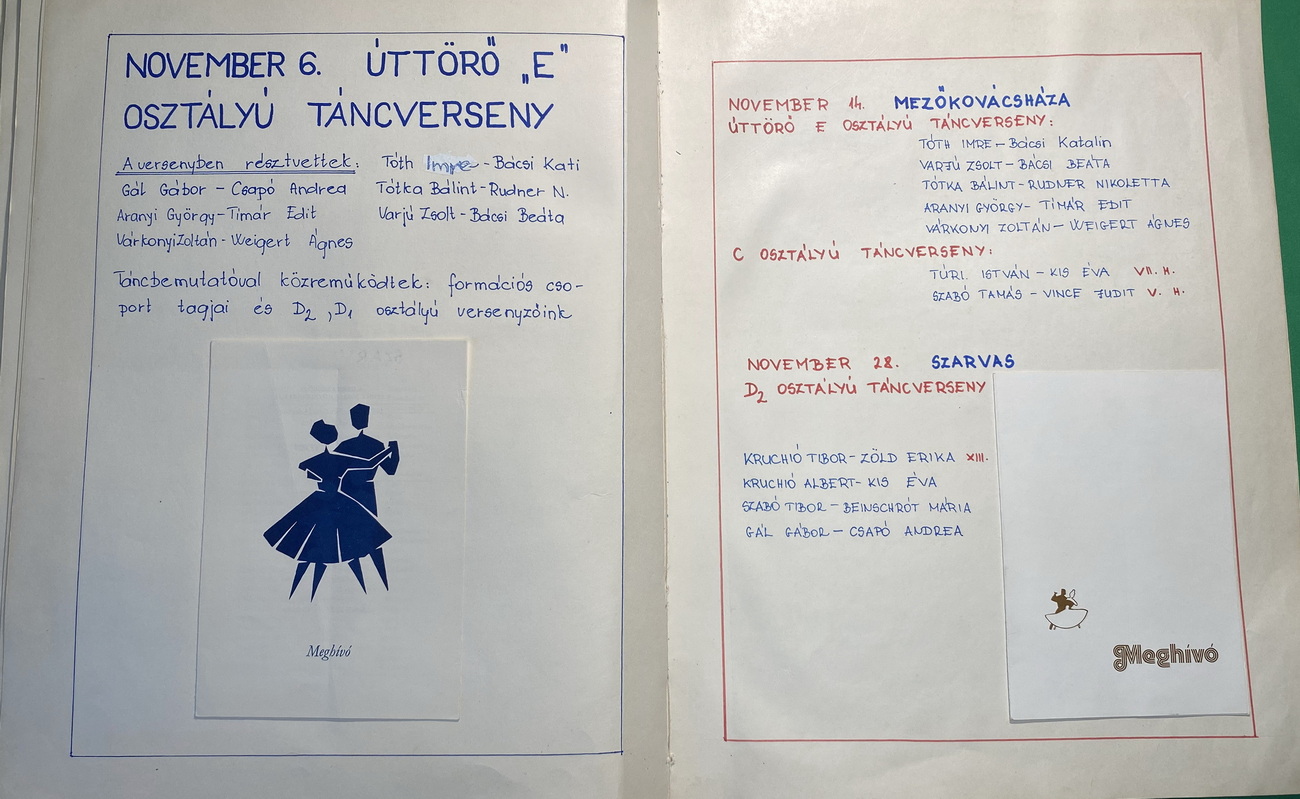 NOVEMBER 6. ÚTTÖRŐ „E”
OSZTÁLYÚ TÁNCVERSENY
A versenyben résztvettek: Tóth Imre - Bácsi Kati
Gál Gábor - Csapó Andrea Tótka Bálint - Rudner N.
Aranyi György - Tímár Edit Varjú Zsolt - Bácsi Beáta
Várkonyi Zoltán - Weigert Ágnes
Táncbemutatóval közreműködtek: formációs cso-
port tagjai és D2, D1 osztályú versenyzőink
Meghívó
NOVEMBER 14. MEZŐKOVÁCSHÁZA
ÚTTÖRŐ E OSZTÁLYÚ TÁNCVERSENY:
TÓTH IMRE - Bácsi Katalin
VARJÚ ZSOLT - BÁCSI BEÁTA
TÓTKA BÁLINT - RUDNER NIKOLETTA
ARANYI GYÖRGY - TÍMÁR EDIT
VÁRKONYI ZOLTÁN - WEIGERT ÁGNES
C OSZTÁLYÚ TÁNCVERSENY:
TÚRI. ISTVÁN - KIS ÉVA VII. H.
SZABÓ TAMÁS - VINCE JUDIT V. H.
NOVEMBER 28. SZARVAS
D2 OSZTÁLYÚ TÁNCVERSENY
KRUCHIÓ TIBOR - ZÖLD ERIKA XIII.
KRUCHIÓ ALBERT - KIS ÉVA
SZABÓ TIBOR - BEINSCHRÓT MÁRIA
GÁL GÁBOR - CSAPÓ ANDREA
Meghívó